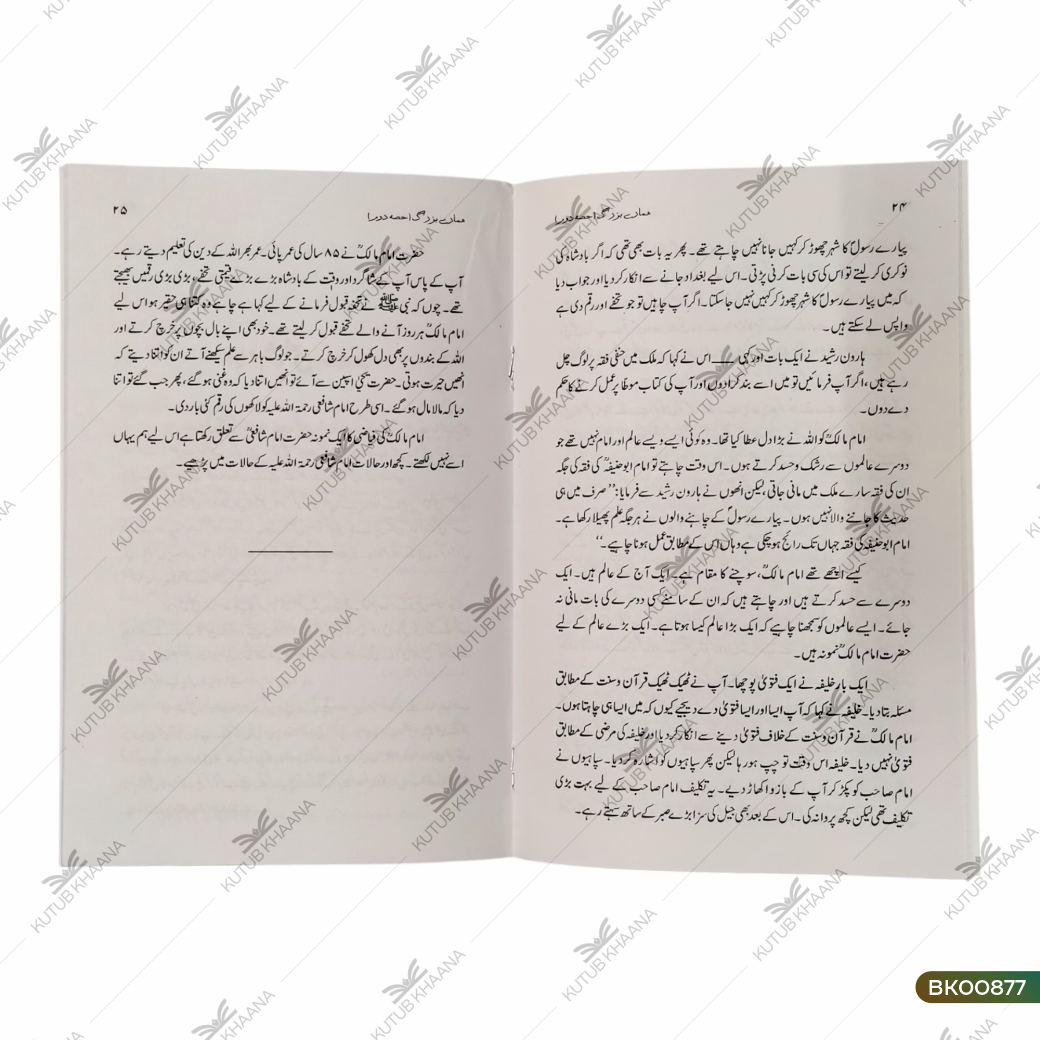 ۲۴
ہمارے بزرگ (حصہ دوم)
پیارے رسولؐ کا شہر چھوڑ کر کہیں جانا نہیں چاہتے تھے۔ پھر یہ بات بھی تھی کہ اگر بادشاہ کی
نوکری کر لیتے تو اس کی سی بات کرنی پڑتی۔ اس لیے بغداد جانے سے انکار کر دیا اور جواب دیا
کہ میں پیارے رسولؐ کا شہر چھوڑ کر کہیں نہیں جا سکتا۔ اگر آپ چاہیں تو جو تحفے اور رقم دی ہے
واپس لے سکتے ہیں۔
ہارون رشید نے ایک بات اور کہی ـــــ اس نے کہا کہ ملک میں حنفی فقہ پر لوگ چل
رہے ہیں، اگر آپ فرمائیں تو میں اسے بند کرا دوں اور آپ کی کتاب موطا پر عمل کرنے کا حکم
دے دوں۔
امام مالکؒ کو اللہ نے بڑا دل عطا کیا تھا۔ وہ کوئی ایسے ویسے عالم اور امام نہیں تھے جو
دوسرے عالموں سے رشک و حسد کرتے ہوں۔ اس وقت چاہتے تو امام ابوحنیفہؒ کی فقہ کی جگہ
ان کی فقہ سارے ملک میں مانی جاتی، لیکن انھوں نے ہارون رشید سے فرمایا: ’’صرف میں ہی
حدیث کا جاننے والا نہیں ہوں۔ پیارے رسولؐ کے چاہنے والوں نے ہر جگہ علم پھیلا رکھا ہے۔
امام ابوحنیفہؒ کی فقہ جہاں تک رائج ہو چکی ہے وہاں اس کے مطابق عمل ہونا چاہیے۔‘‘
کیسے اچھے تھے امام مالکؒ، سوچنے کا مقام ہے۔ ایک آج کے عالم ہیں۔ ایک
دوسرے سے حسد کرتے ہیں اور چاہتے ہیں کہ ان کے سامنے کسی دوسرے کی بات مانی نہ
جائے۔ ایسے عالموں کو سمجھنا چاہیے کہ ایک بڑا عالم کیسا ہوتا ہے۔ ایک بڑے عالم کے لیے
حضرت امام مالکؒ نمونہ ہیں۔
ایک بار خلیفہ نے ایک فتویٰ پوچھا۔ آپ نے ٹھیک ٹھیک قرآن و سنت کے مطابق
مسئلہ بتا دیا۔ خلیفہ نے کہا کہ آپ ایسا اور ایسا فتویٰ دے دیجیے کیوں کہ میں ایسا ہی چاہتا ہوں۔
امام مالکؒ نے قرآن و سنت کے خلاف فتویٰ دینے سے انکار کر دیا اور خلیفہ کی مرضی کے مطابق
فتویٰ نہیں دیا۔ خلیفہ اس وقت تو چپ ہو رہا لیکن پھر سپاہیوں کو اشارہ کر دیا۔ سپاہیوں نے
امام صاحب کو پکڑ کر آپ کے بازو اکھاڑ دیے۔ یہ تکلیف امام صاحب کے لیے بہت بڑی
تکلیف تھی لیکن کچھ پروا نہ کی۔ اس کے بعد بھی جیل کی سزا بڑے صبر کے ساتھ سہتے رہے۔
ہمارے بزرگ (حصہ دوم)
۲۵
حضرت امام مالکؒ نے ۸۵ سال کی عمر پائی۔ عمر بھر اللہ کے دین کی تعلیم دیتے رہے۔
آپ کے پاس آپ کے شاگرد اور وقت کے بادشاہ بڑے بڑے قیمتی تحفے، بڑی بڑی رقمیں بھیجتے
تھے۔ چوں کہ نبی ﷺ نے تحفہ قبول فرمانے کے لیے کہا ہے چاہے وہ کتنا ہی حقیر ہو اس لیے
امام مالکؒ ہر روز آنے والے تحفے قبول کر لیتے تھے۔ خود بھی اپنے بال بچوں پر خرچ کرتے اور
اللہ کے بندوں پر بھی دل کھول کر خرچ کرتے۔ جو لوگ باہر سے علم سیکھنے آتے ان کو اتنا دیتے کہ
انھیں حیرت ہوتی۔ حضرت یحییٰ اسپین سے آئے تو انھیں اتنا دیا کہ وہ غنی ہو گئے، پھر جب گئے تو اتنا
دیا کہ مالا مال ہو گئے۔ اسی طرح امام شافعی رحمۃ اللہ علیہ کو لاکھوں کی رقم کئی بار دی۔
امام مالکؒ کی فیاضی کا ایک نمونہ حضرت امام شافعیؒ سے تعلق رکھتا ہے اس لیے ہم یہاں
اسے نہیں لکھتے۔ کچھ اور حالات امام شافعی رحمۃ اللہ علیہ کے حالات میں پڑھیے۔
KUTUB KHAANA
BK00877